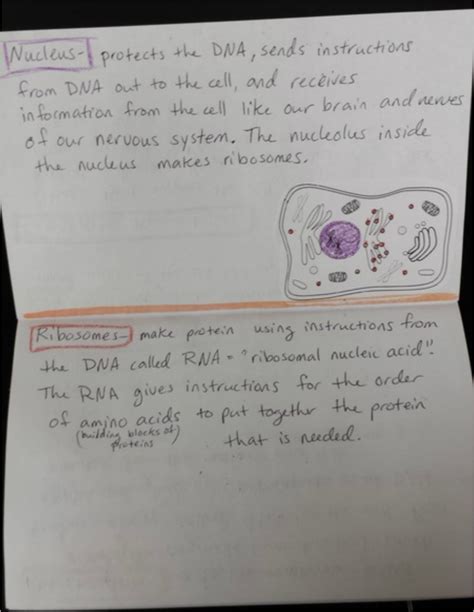 Nucleus- protects the DNA, sends instructions
from DNA out to the cell, and receives
information from the cell like our brain and nerves
of our nervous system. The nucleolus inside
the nucleus makes ribosomes.
Ribosomes- make protein using instructions from
the DNA called RNA = "ribosomal nucleic acid".
The RNA gives instructions for the order
of amino acids to put together the protein
(building blocks of proteins) that is needed.